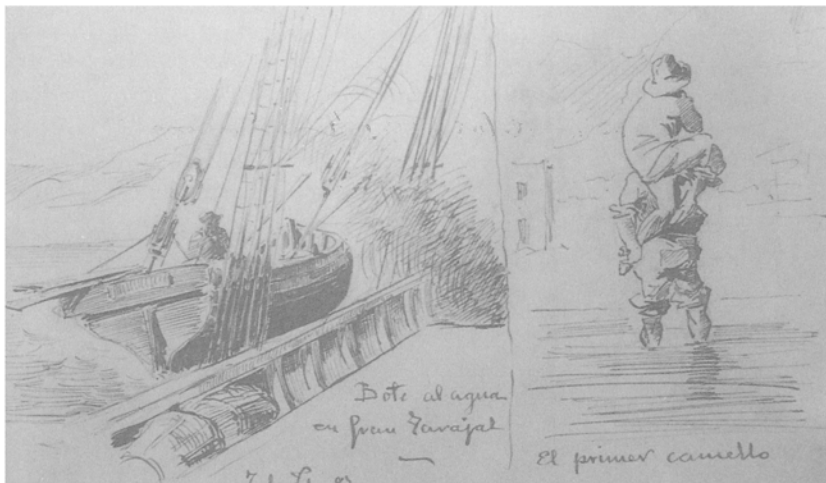 Bote al agua
en Gran Tarajal
El primer camello